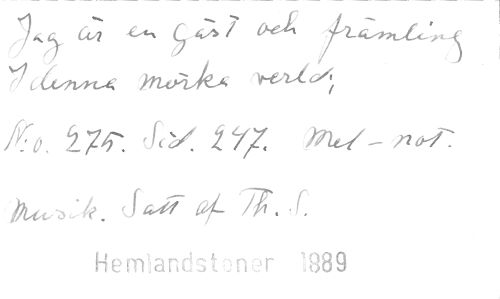 Jag är en gäst och främling
I denna mörka verld;
N:o. 275. Sid. 247. Mel-not.
Musik. Satt af Th. S.
Hemlandstoner 1889